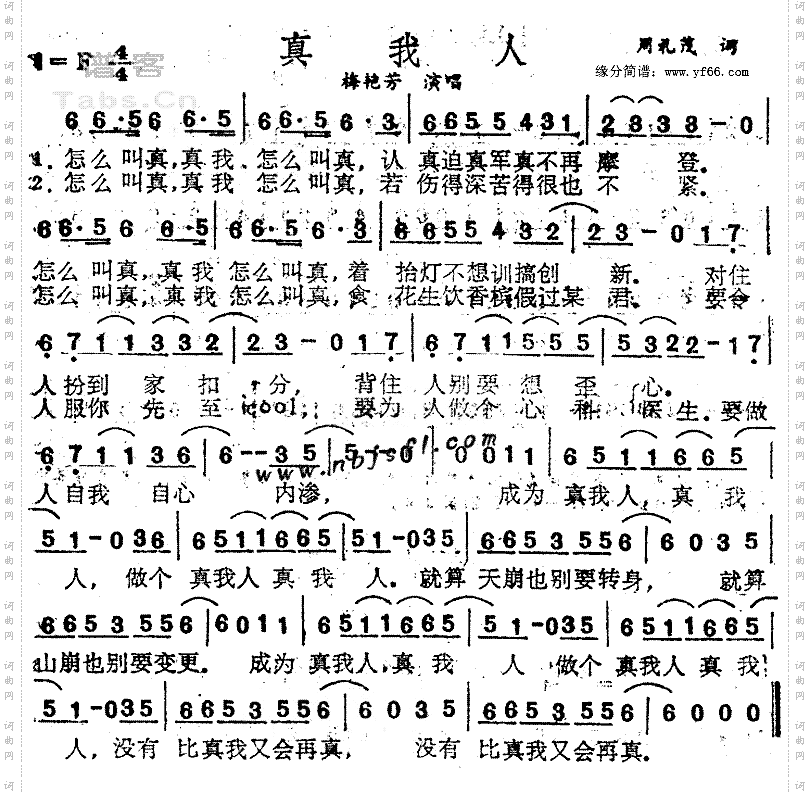 真 我 人
周礼茂 词
1=F 4/4
谱客
Tabs.Cn
缘分简谱：www.yf66.com
梅艳芳 演唱
6 6 6·5 6 6 6·5 | 6 6·5 6·3 | 6 6 5 5 4 3 1 | 2 3 3 3 - 0
1. 怎么叫真,真我、怎么叫真,认 真迫真军真不再 摩 登.
2. 怎么叫真,真我 怎么叫真,若 伤得深苦得很也 不 紧.
6 6·5 6 6·5 | 6 6·5 6·3 | 6 6 5 5 4 3 2 | 2 3 - 0 1 7
怎么叫真,真我 怎么叫真,着 抬灯不想训搞创 新. 对住
怎么叫真,真我 怎么叫真,食 花生饮香槟假过某 君.
6 7 1 1 3 3 2 | 2 3 - 0 1 7 | 6 7 1 1 5 5 5 | 5 3 2 2 - 1 7
人扮到 家 扣 分, 背住 人别要 想 歪 心.
人服你 先 至 cool, 要为 人做个 心 科 医 生. 要做
6 7 1 1 3 6 | 6 - - 3 5 | 5 - 0 | 0 0 1 1 | 6 5 1 1 6 6 5
www.nbjsfl.com
人自我 自心 内渗, 成为 真我人,真 我
5 1 - 0 3 6 | 6 5 1 1 6 6 5 | 5 1 - 0 3 5 | 6 6 5 3 5 5 6 | 6 0 3 5
人, 做个 真我人真 我 人. 就算 天崩也别要转身, 就算
6 6 5 3 5 5 6 | 6 0 1 1 | 6 5 1 1 6 6 5 | 5 1 - 0 3 5 | 6 5 1 1 6 6 5
山崩也别要变更. 成为 真我人,真 我 人 做个 真我人真 我
5 1 - 0 3 5 | 6 6 5 3 5 5 6 | 6 0 3 5 | 6 6 5 3 5 5 6 | 6 0 0 0
人,没有 比真我又会再真, 没有 比真我又会再真.
词曲网